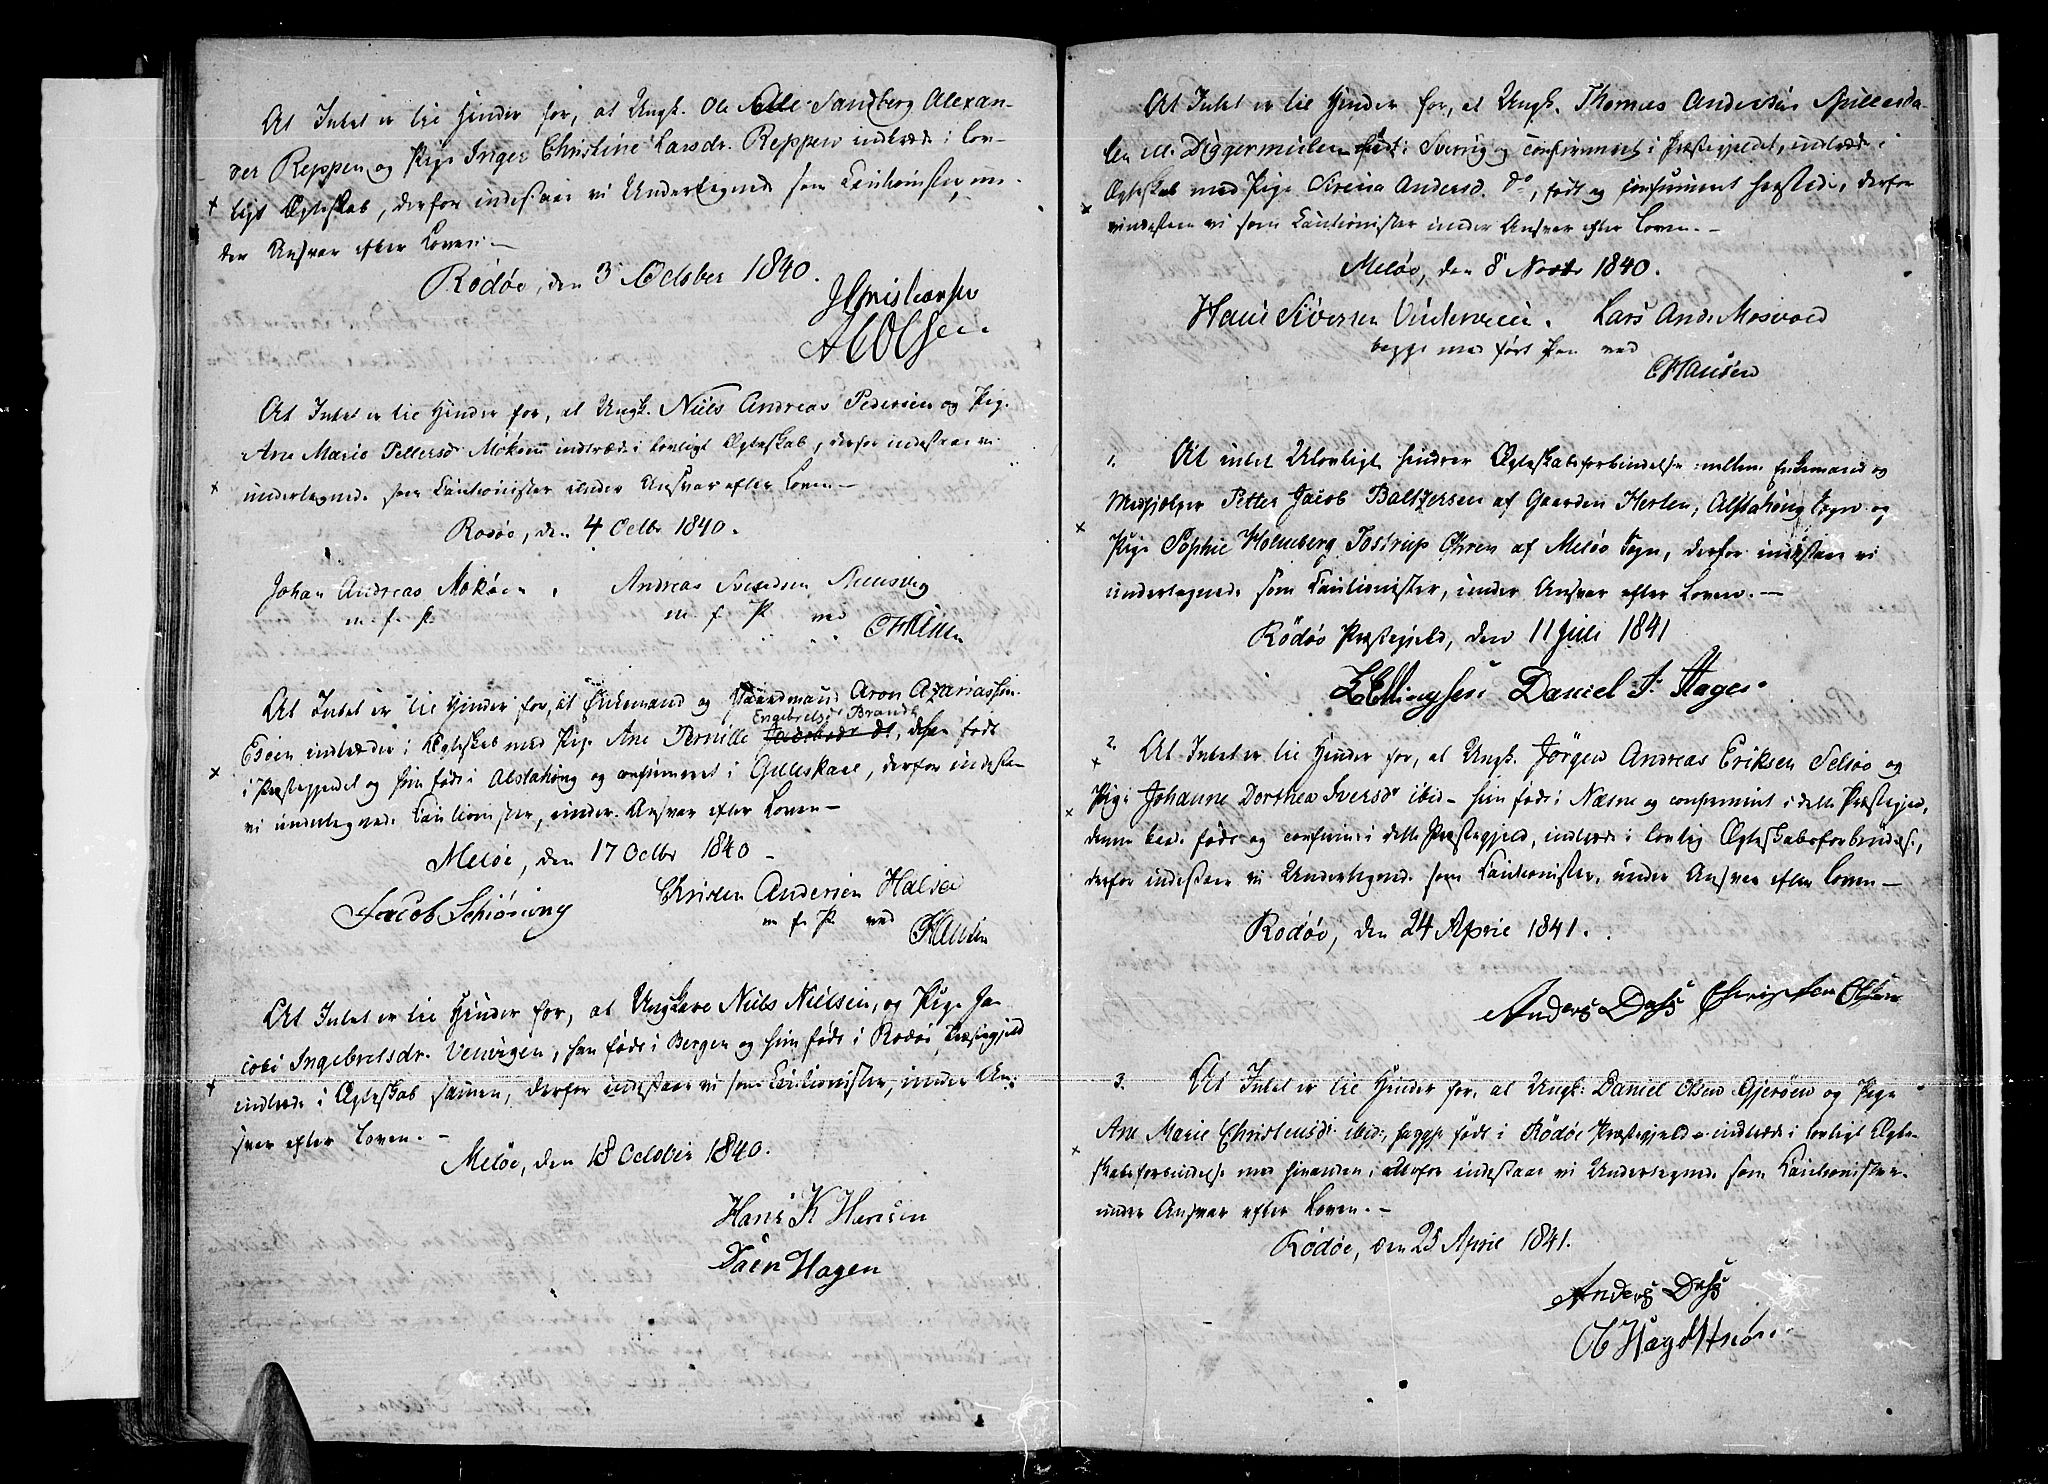 At Intet er til Hinder for, at Ungk. Ole Sandberg Alexan-
der Reppen og Pige Inger Christine Larsdr. Reppen indtræde i lov-
ligt Ægteskab, derfor indestaae vi Undertegnede som Cautionister, un-
der Ansvar efter Loven. —
Rödöe, den 3 October 1840.
J Christensen
A Olsen
At Intet er til Hinder for, at Ungk. Niels Andreas Pedersen og Pige
Ane Marie Pettersd. indtræde i lovligt Ægteskab, derfor indestaae vi
undertegnede som Cautionister under Ansvar efter Loven. —
Rödöe, den 4 Octbr 1840.
Johan Andreas Andreas Svendsen
m. f. P. m. f. P. ved
CHansen
At Intet er til Hinder for, at Enkemand og Gaardmand Aron Azariassen
Engebretsd. Brandt
Esöen indtræder i Ægteskab med Pige Ane Pernille født
i Præstegjeldet og hun født i Alstahoug og confirmeret i Gilleskaal, derfor indestaa
vi undertegnede Cautionister, under Ansvar efter Loven —
Melöe, den 17 Octbr 1840 —
Jacob Schiöning Christen Andersen Halsöe
m. f. P. ved
CHansen
At Intet er til Hinder for, at Ungkarl Niels Nielsen, og Pige Ja-
cobi Ingebretsdr. , han født i Bergen og hun født i Rödöe Præstegjeld
indtræde i Ægteskab sammen, derfor indestaae vi som Cautionister, under An-
svar efter Loven. —
Melöe, den 18 October 1840.
Hans K Hansen
Hagen
At Intet er til Hinder for, at Ungk. Thomas Andersen
Diggermulen født i Sverrig og confirmeret i Præstegjeldet, indtræde i
Ægteskab med Pige Sirena Andersd. do, født og confirmeret herstede, derfor
indestaae vi som Cautionister under Ansvar efter Loven. —
Melöe, den 8 Novbr 1840.
Hans Siversen Lars And. Mosvold
begge med ført Pen ved
CHansen
1. At intet Ulovligt hindrer Ægteskabsforbindelse mellem Enkemand og
Medhjelper Petter Jacob Baltzersen af Gaarden Herlen, Alstahoug Sogn og
Pige Sophie Holmberg Tostrup Ohren af Melöe Sogn, derfor indestaae vi
undertegnede som Cautionister, under Ansvar efter Loven. —
Rödöe Præstegjeld, den 11 Juli 1841
Ellingsen Daniel J. Hagen
2. At Intet er til Hinder for, at Ungk. Jörgen Andreas Eriksen Selsöe og
Pige Johanne Dorthea Iversdr ibid — hun født i Næsne og confirmeret i dette Præstegjeld,
denne baade født og confirm: i dette Præstegjeld, indtræde i lovlig Ægteskabsforbindelse,
derfor indestaae vi Undertegnede som Cautionister, under Ansvar efter Loven —
Rödöe, den 24 April 1841.
Anders Dass Christen Olsen
3. At Intet er til Hinder for, at Ungk: Daniel Olsen Gjeröen og Pige
Ane Marie Christensdr ibid:, begge født i Rödöe Præstegjeld — indtræde i lovligt Ægte-
skabsforbindelse med hinanden, derfor indestaae vi Undertegnede som Cautionister
under Ansvar efter Loven. —
Rödöe, den 25 April 1841.
Anders Dass